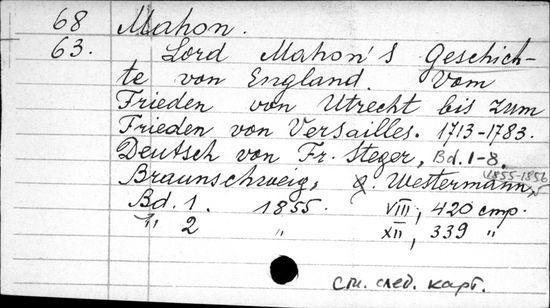 68 Mahon.
63. Lord Mahon's Geschich-
te von England. Vom
Frieden von Utrecht bis zum
Frieden von Versailles. 1713-1783.
Deutsch von Fr. Steger, Bd. 1-8.
Braunschweig, G. Westermann, 1855-1856
Bd. 1. 1855. VIII, 420 стр.
" 2 " XII, 339 "
См. след. карт.